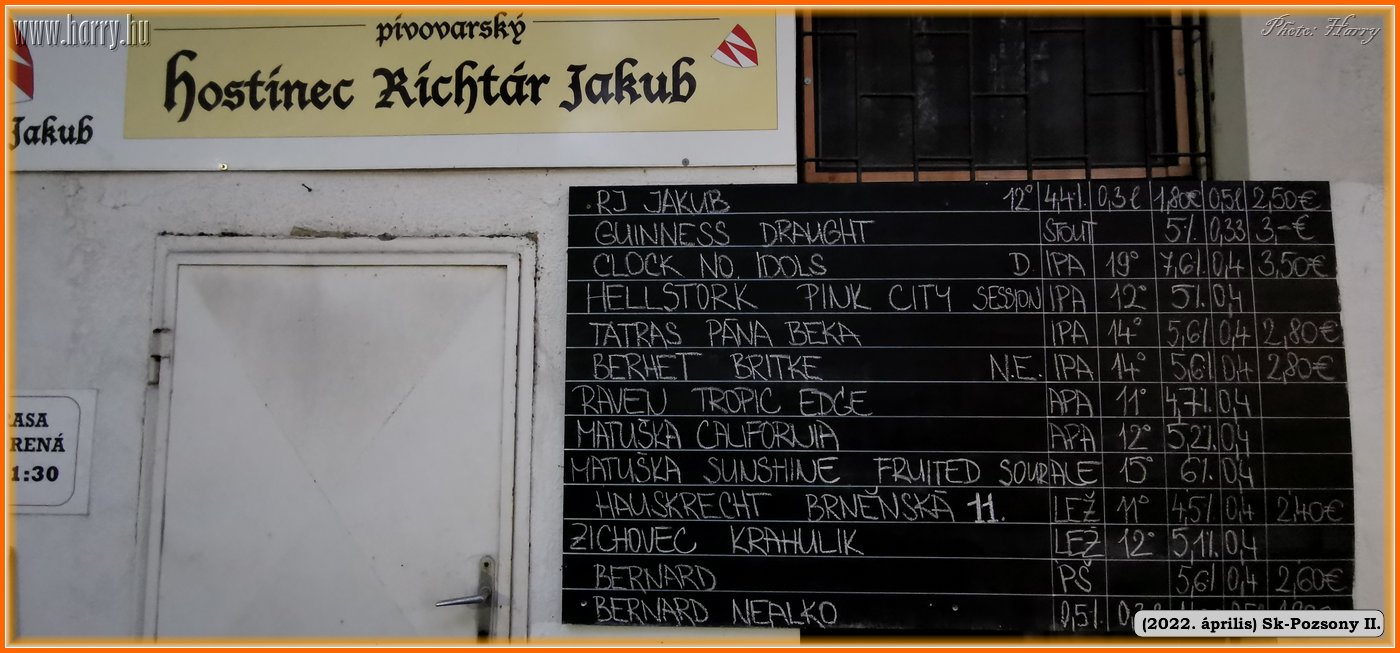 www.harry.hu
Photo: Harry
pivovarský
Hostinec Richtár Jakub
Jakub
RJ JAKUB 12° 4,4% 0,3l 1,80€ 0,5l 2,50€
GUINNESS DRAUGHT STOUT 5% 0,33 3,-€
CLOCK NO. IDOLS D. IPA 19° 7,6% 0,4 3,50€
HELLSTORK PINK CITY SESSION IPA 12° 5% 0,4
TATRAS PÁNA BEKA IPA 14° 5,6% 0,4 2,80€
BERHET BRITKE N.E. IPA 14° 5,6% 0,4 2,80€
RAVEN TROPIC EDGE APA 11° 4,7% 0,4
MATUŠKA CALIFORNIA APA 12° 5,2% 0,4
MATUŠKA SUNSHINE FRUITED SOUR ALE 15° 6% 0,4
HAUSKRECHT BRNĚNSKÁ 11. LEŽ 11° 4,5% 0,4 2,40€
ZICHOVEC KRAHULIK LEŽ 12° 5,1% 0,4
BERNARD PŠ 5,6% 0,4 2,60€
BERNARD NEALKO 0,5%
RASA
RENÁ
1:30
(2022. április) Sk-Pozsony II.